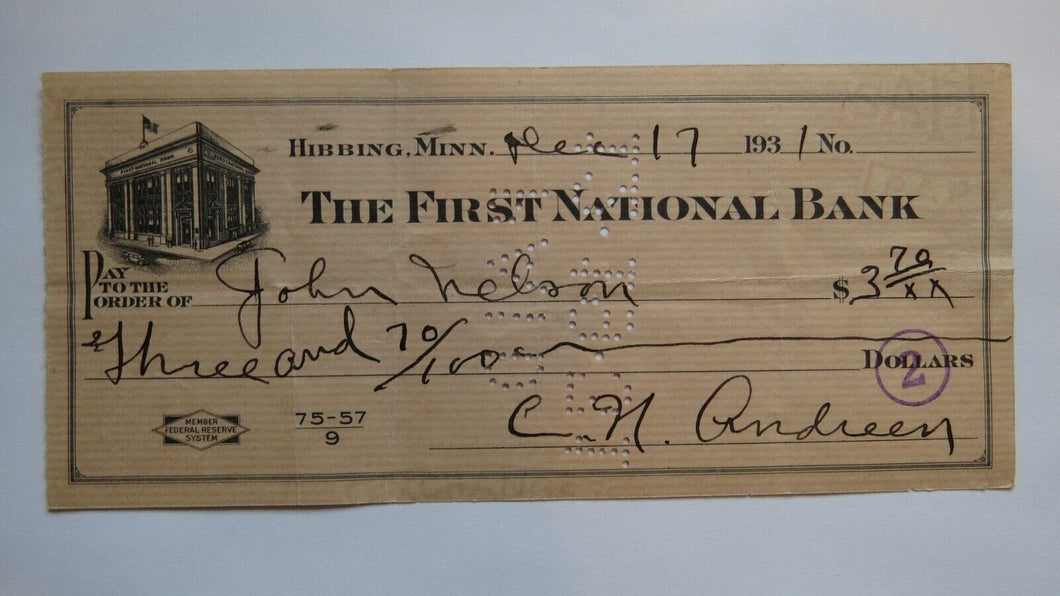 HIBBING, MINN. Dec 17 1931 No.
FIRST NATIONAL BANK
THE FIRST NATIONAL BANK
PAY TO THE ORDER OF John Nelson $3 70/xx
Three and 70/100 DOLLARS
2
MEMBER
FEDERAL RESERVE
SYSTEM
75-57
9
C. N. Andreen